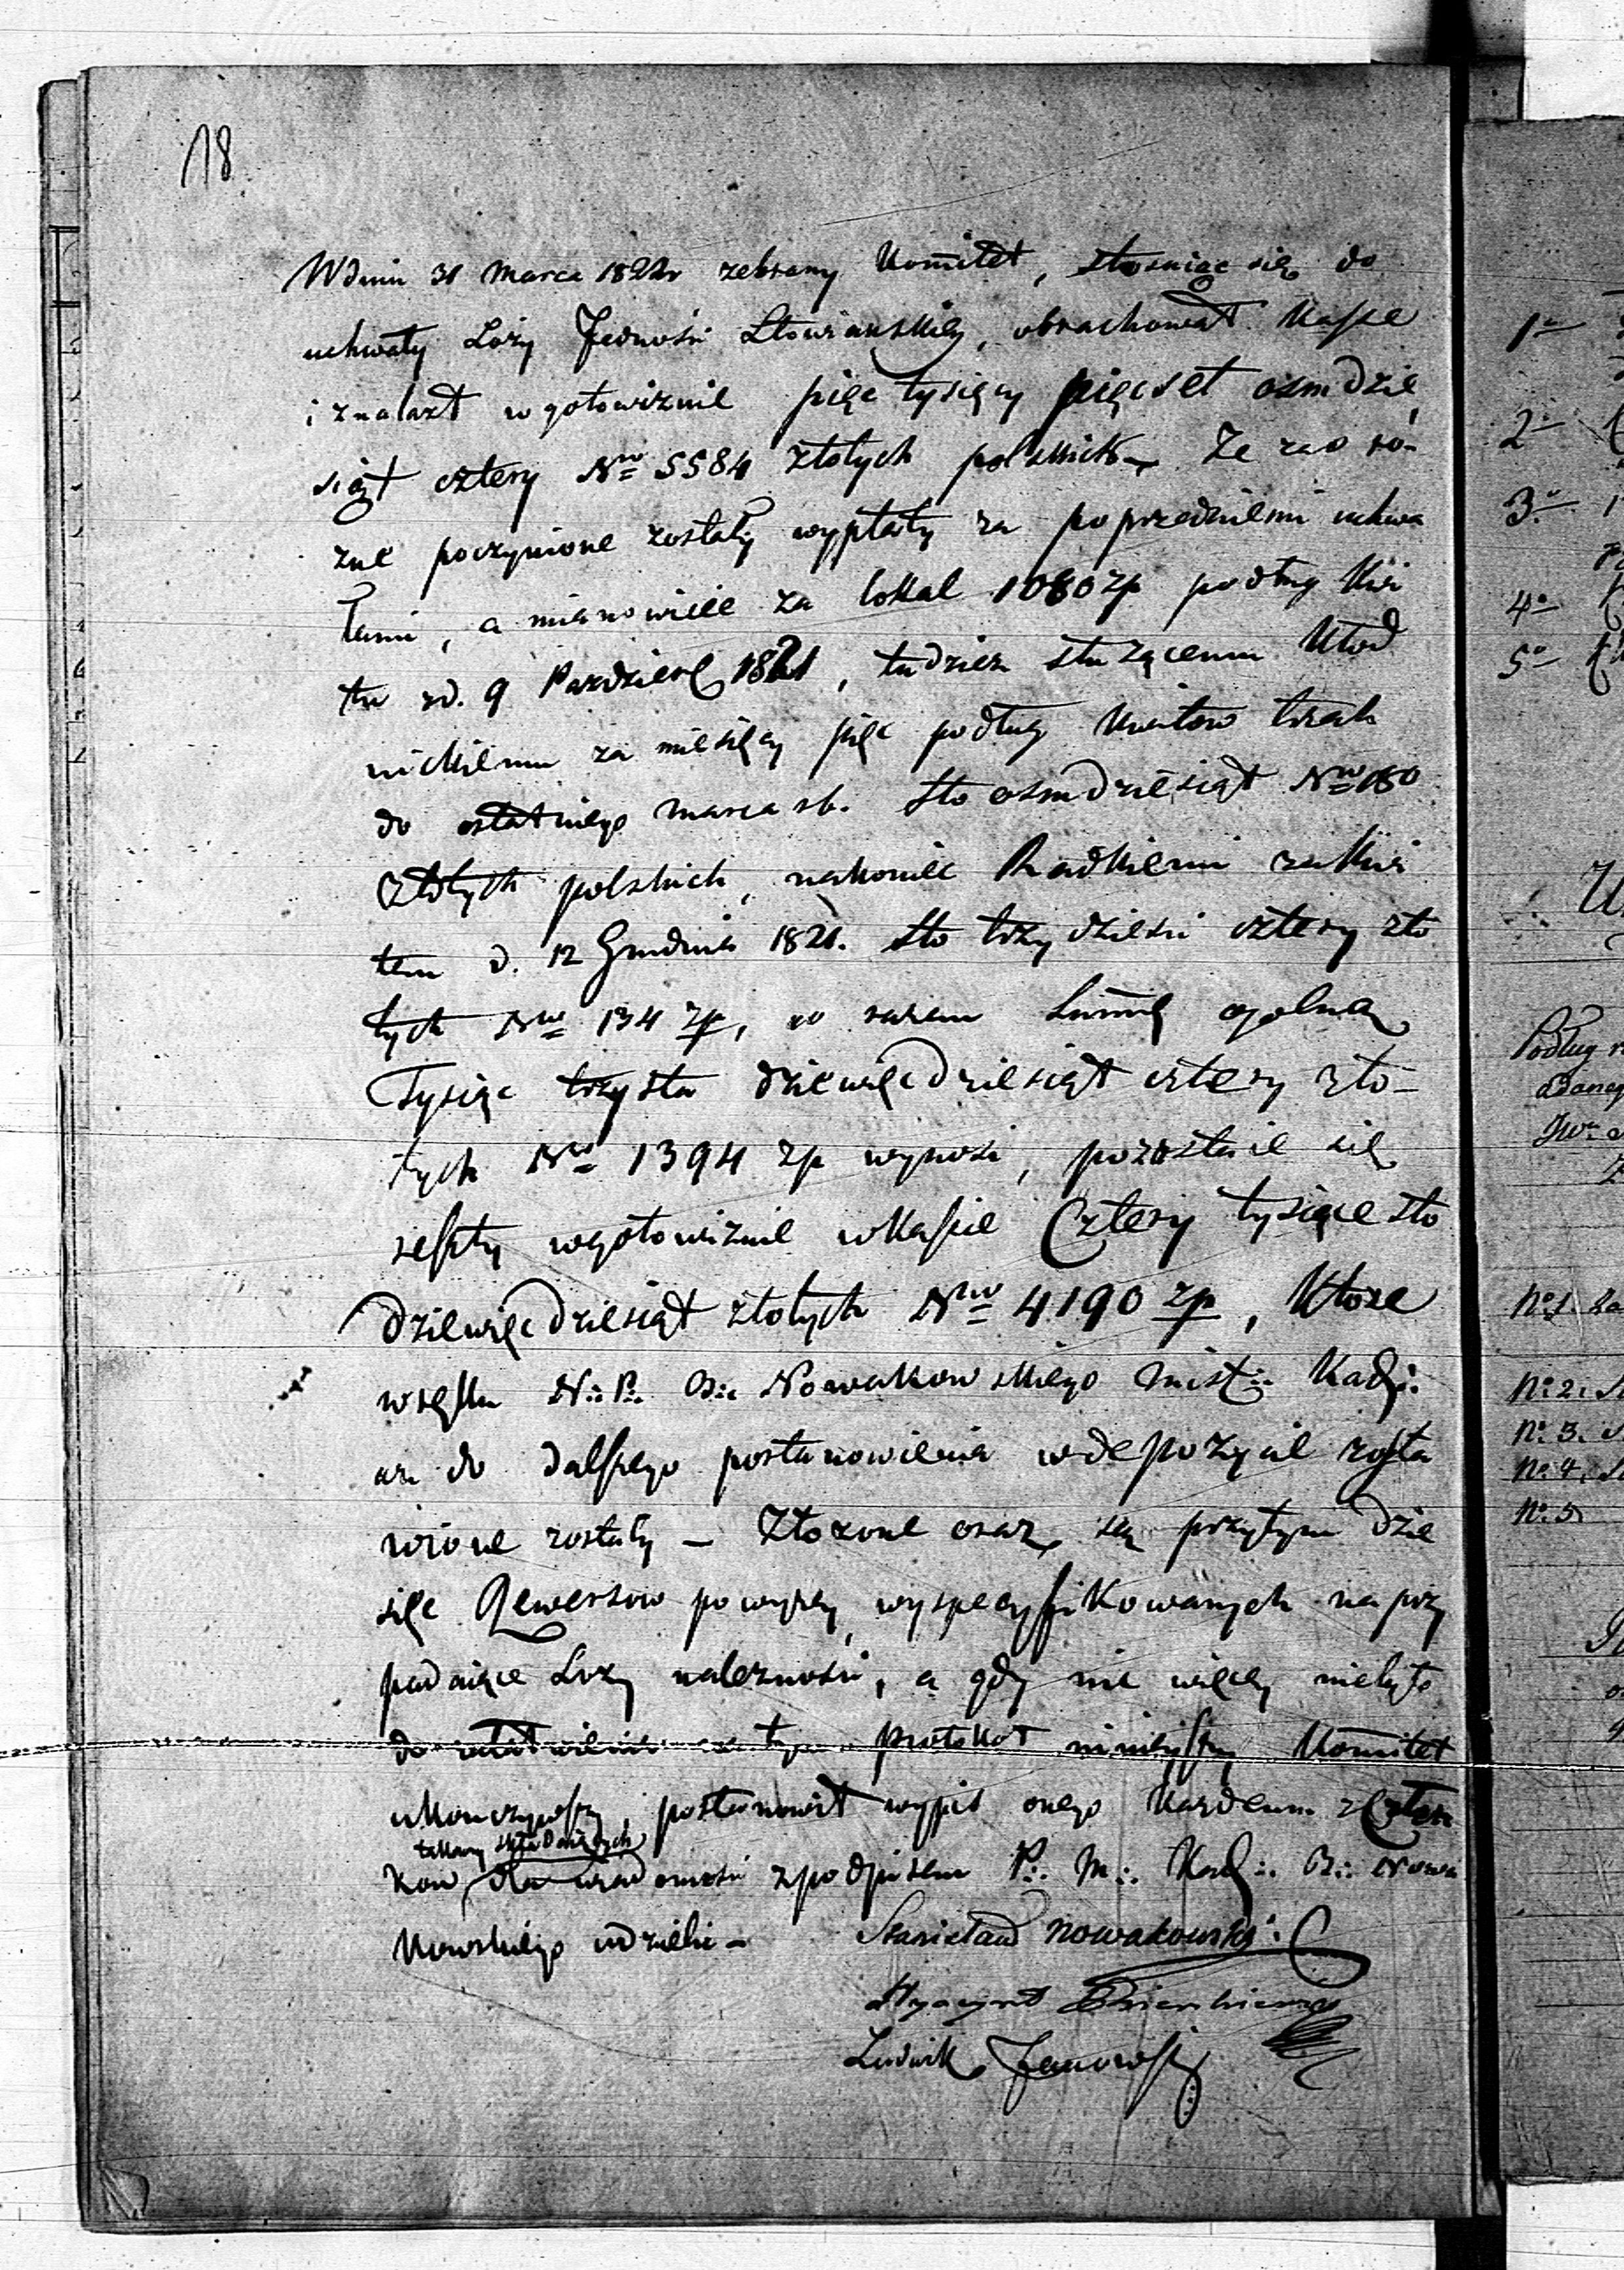 18
W dniu 31 Marca 1822r zebrany Komitet, stosuiąc się do
uchwały Loży Jedności Słowiańskiey, obrachował Kassę
i znalazł w gotowiznie pięc tysięcy pięcset osmdzie
siąt cztery Nro 5584 złotych polskich – Ze zas ro-
zne poczynione zostały wypłaty za poprzedniemi uchwa
łami, a mianowicie za lokal 1080 zp podług Kwi
tu zd. 9 Pazdzier 1821, tudziez słuzącemu Kłod
nickiemu za miesięcy pięc podług Kwitow trzech
do ostatniego marca rb. sto osmdziesiąt Nro 180
złotych polskich, nakoniec Radkiemi za Kwi
tem d. 12 Grudnia 1821. sto trzydziesci cztery zło
tych Nro 134 zp, co razem Summę ogolną
Tysiąc trzysta dziewięcdziesiąt cztery zło-
tych Nro 1394 zp wynosi, pozostaie się
reszty w gotowiznie w Kassie Cztery tysiące sto
dziewięcdziesiąt złotych Nro 4190 zp, Które
w ręku N∴ P∴ B∴ Nowakowskiego mist∴ Kad∴
az do dalszego postanowienia w depozycie zosta
wione zostały – Złozone oraz są przytym dzie
sięc Rewersow powyzey wyspecyfikowanych na przy
padaiące Lozy naleznosci, a gdy nic więcey niebyło
do załatwienia protokoł ninieyszy Komitet
ukonczywszy, postanowił wypis onego Kazdemu z Człon
takowy składaiących
kow dla wiadomosci z podpisem P∴ M∴ Kad∴ B∴ Nowa
kowskiego udzielic –
Stanisław Nowakowski
Hyacynt
Ludwik Janowski
1o
2o
3o
4o
5o
Podług
No 1.
No 2.
No 3.
No 4.
No 5